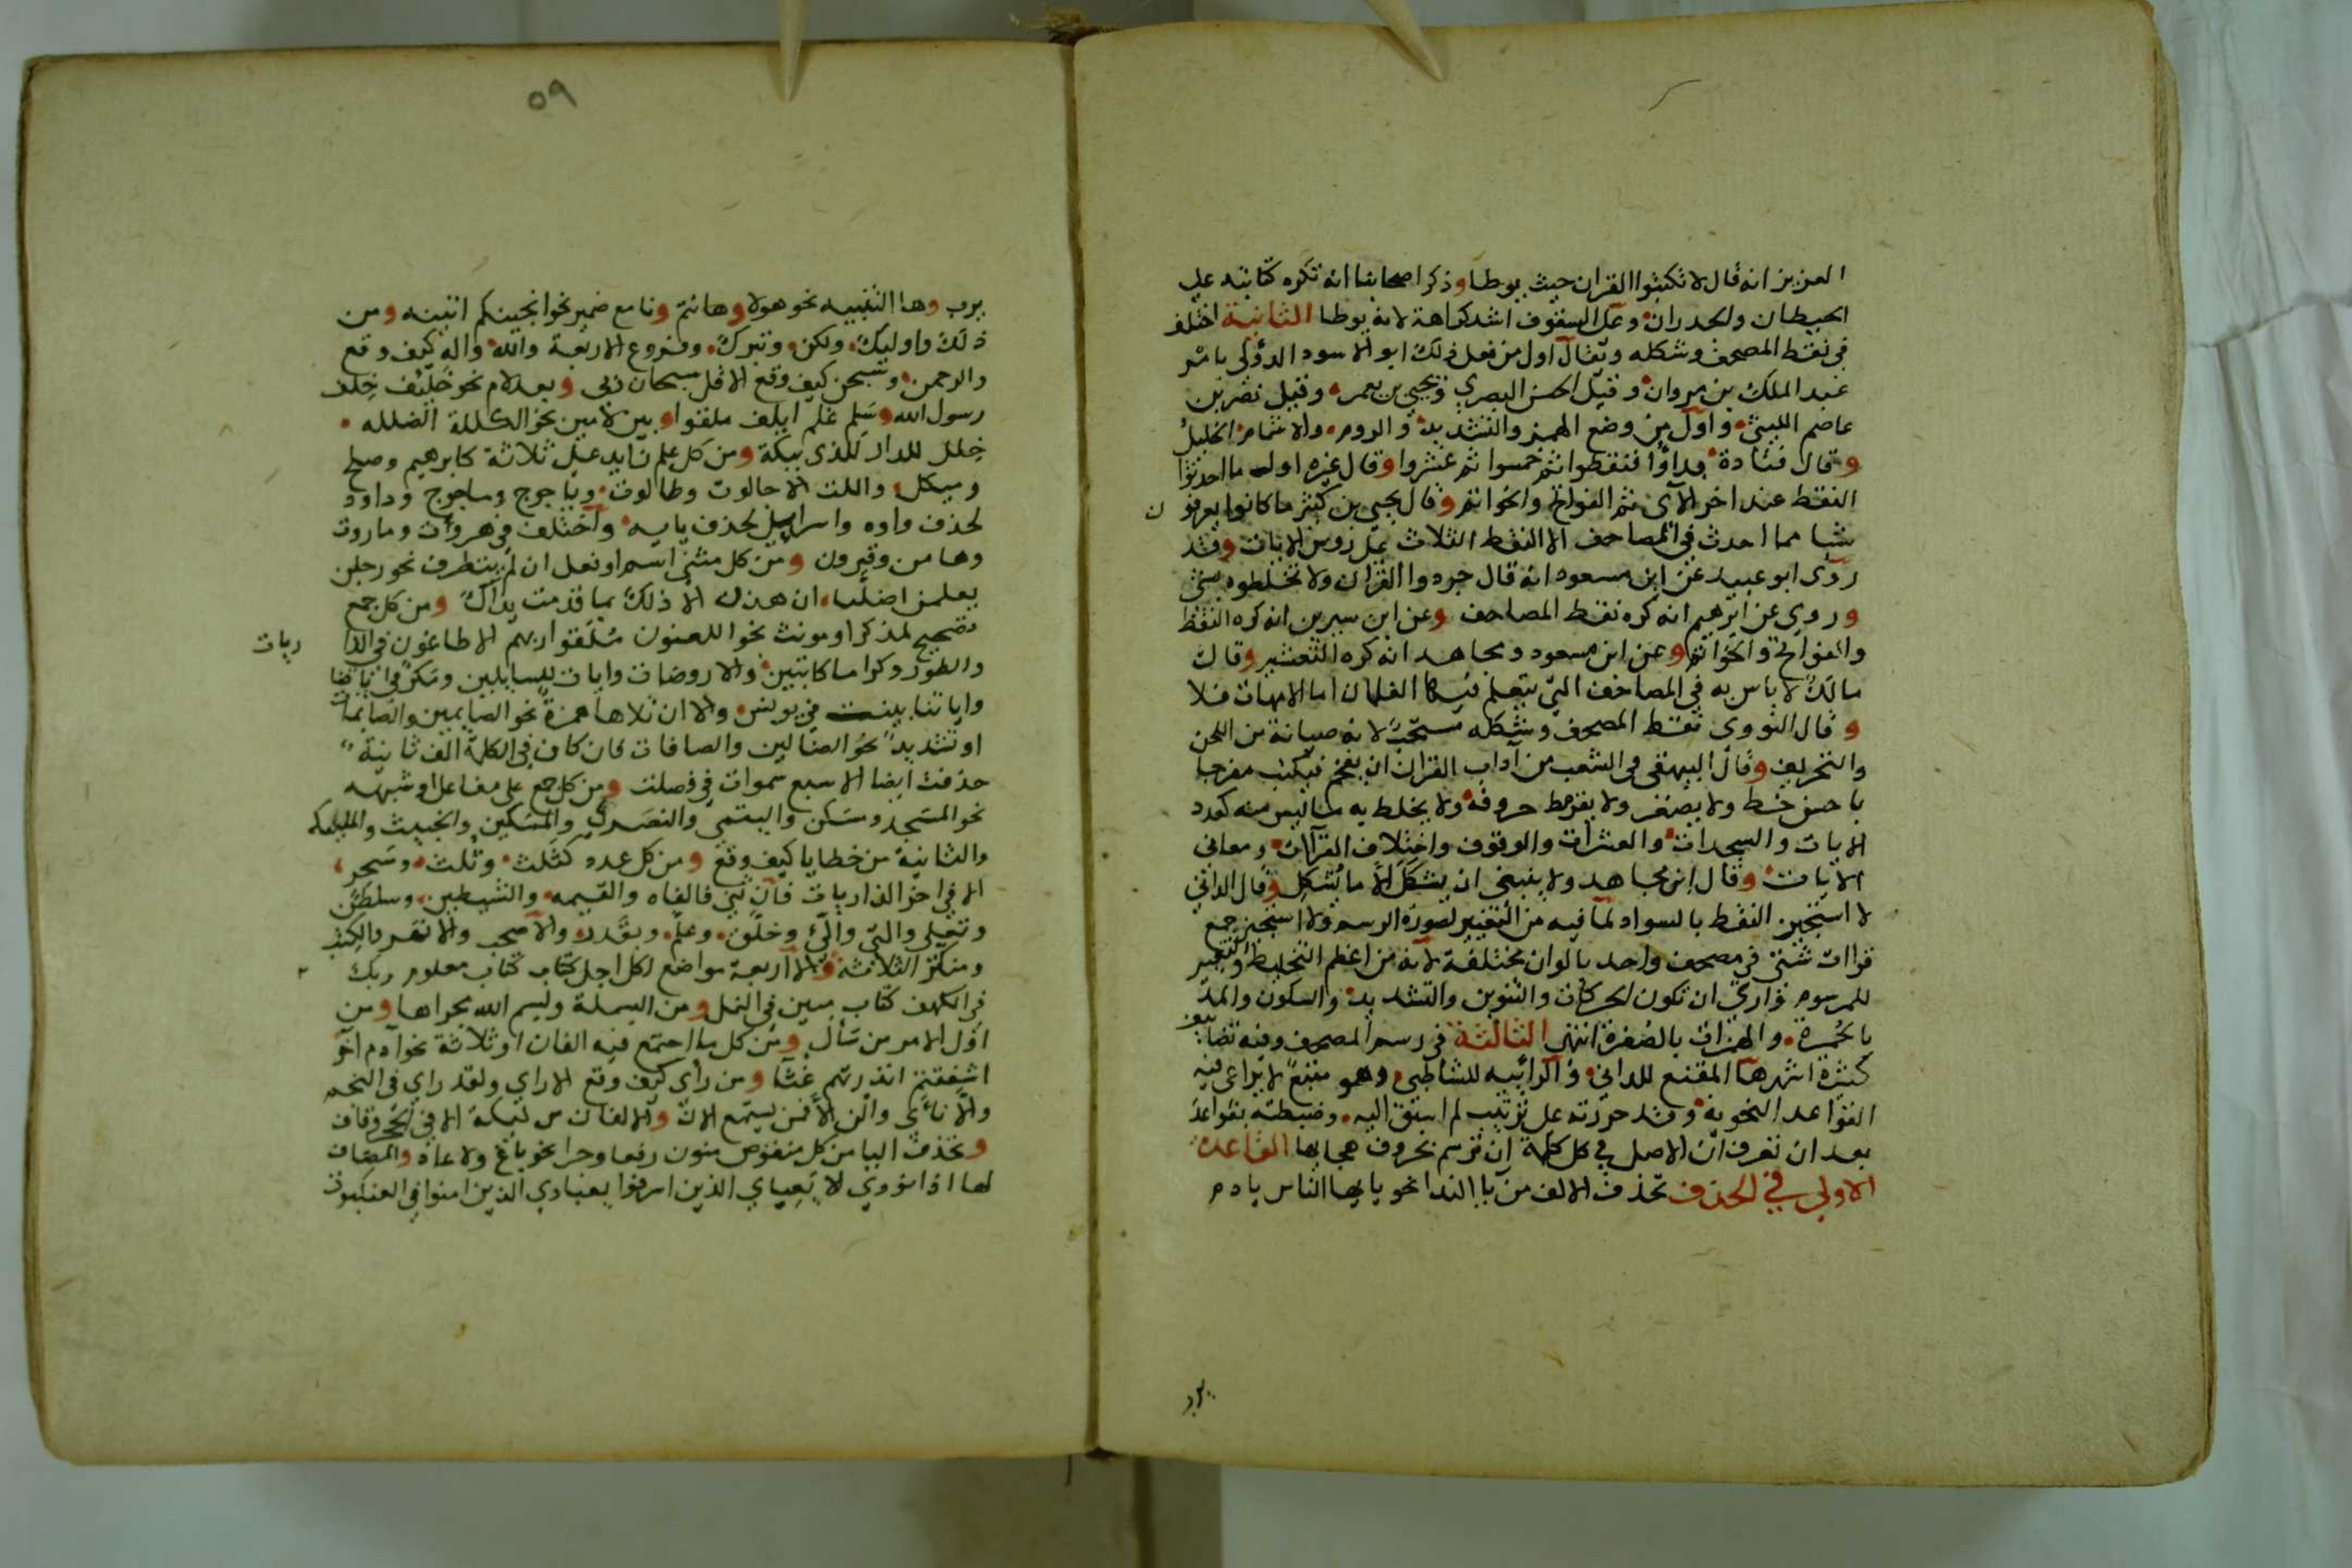 العزيز انه قال لا تكتبوا القران حيث يوطا وذكر اصحابنا انه تكره كتابته على
الحيطان والجدران وعلى السقوف اشد كراهة لانه يوطا الثانية اختلف
في نقط المصحف وشكله ويقال اول من فعل ذلك ابو الاسود الدؤلى بامر
عبد الملك بن مروان وقيل الحسن البصري ويحيى بن يعمر وقيل نصر بن
عاصم الليثى واول من وضع الهمز والتشديد والروم والاشمام الخليل
وقال قتادة بداوا فنقطوا ثم خمسوا ثم عشروا وقال غيره اول ما احدثوا
النقط عند اخر الآى ثم الفواتح والخواتم وقال يحيى بن كثير ما كانوا يعرفون
شيا مما احدث في المصاحف الا النقط الثلاث على روس الايات وقد
روى ابو عبيد عن ابن مسعود انه قال جردوا القران ولا تخلطوه بشى
وروى عن ابرهيم انه كره نقط المصاحف وعن ابن سيرين انه كره النقط
والفواتح والخواتم وعن ابن مسعود ومجاهد انه كره التعشير وقال
مالك لا باس به في المصاحف التي يتعلم فيها الغلمان اما الامهات فلا
وقال النووى نقط المصحف وشكله مستحب لانه صيانة من اللحن
والتحريف وقال البيهقى في الشعب من آداب القران ان يفخم فيكتب مفرجا
باحسن خط ولا يصغر ولا يقرمط حروفه ولا يخلط به ما ليس منه كعدد
الايات والسجدات والعشرات والوقوف واختلاف القرآات ومعانى
الايات وقال ابن مجاهد ولا ينبغى ان يشكل الا ما يشكل وقال الدانى
لا استجيز النقط بالسواد لما فيه من التغيير لصورة الرسم ولا استجيز جمع
قراات شتى في مصحف واحد بالوان مختلفة لانه من اعظم التخليط وتغيير
للمرسوم وارى ان تكون الحركات والتنوين والتشديد والسكون والمد
بالحمرة والهمزات بالصفرة انتهى الثالثة في رسم المصحف وفيه تصانيف
كثيرة اشهرها المقنع للدانى والرائيه للشاطبى وهو متبع لا يراعى فيه
القواعد النحوية وقد حررته على ترتيب لم اسبق اليه وضبطته بقواعد
بعد ان تعرف ان الاصل في كل كلمة ان ترسم بحروف هجايها القاعدة
الاولى في الحذف تحذف الالف من يا الندا نحو يايها الناس يادم
يرب
٥٩
يرب وها التنبيه نحو هولا وهانتم ونا مع ضمير نحو انجينكم اتينه ومن
ذلك واوليك ولكن وتبرك وفروع الاربعة والله واله كيف وقع
والرحمن وسبحن كيف وقع الا قل سبحان ربى وبعد لام نحو خليف خلف
رسول الله وسلم غلم ايلف ملقوا وبين لامين نحو الكللة الضلله
خلل للدار للذى ببكة ومن كل علم زايد على ثلاثة كابرهيم وصلح
وميكل واللت الا جالوت وطالوت وياجوج وماجوج وداود
لحذف واوه واسرايل لحذف يايه واختلف في هروت وماروت
وهامن وقرون ومن كل مثنى اسم او فعل ان لم يتطرف نحو رجلن
يعلمن اضلنا ان هذن الا ذلك بما قدمت يداك ومن كل جمع
تصحيح لمذكر او مونث نحو اللعنون ملقوا ربهم الا طاغون في الذاريات
والطور وكراما كاتبين والا روضات وايات للسايلين ومكر في اياتنا
واياتنا بينت في يونس والا ان تلاها همزة نحو الصايمين والصايمات
او تشديد نحو الضالين والصافات فان كان في الكلمة الف ثانية
حذفت ايضا الا سبع سموات في فصلت ومن كل جمع على مفاعل او شبهه
نحو المسجد ومسكن واليتمى والنصرى والمسكين والخبيث والمليكه
والثانية من خطايا كيف وقع ومن كل عدد كثلث وثلث وسحر
الا في اخر الذاريات فان ثنى فالفاه والقيمه والشيطين وسلطن
وتعلى والتى والئ وخلق وعلم وبقدر والاصحب والانهر والكتب
ومنكر الثلاثة والا اربعة مواضع لكل اجل كتاب كتاب معلوم ربك
في الكهف كتاب مبين في النمل ومن البسملة وبسم الله مجراها ومن
اول الامر من سأل ومن كل ما اجتمع فيه الفان او ثلاثة نحو آدم آخر
اشفقتم انذرتهم غثا ومن رأى كيف وقع الا راى ولقد راى في النجم
والا ناى والن الا فمن يستمع الان والالفان من ليكة الا في الحجر وقاف
وتحذف اليا من كل منقوص منون رفعا وجرا نحو باغ ولا عاد والمضاف
لها اذا نودى الا يعبادى الذين اسرفوا يعبادى الذين امنوا في العنكبوت